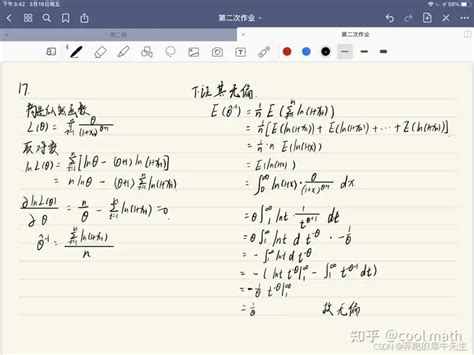 下午5:42 3月19日周五
59%
第二次作业
第二次作业
17.
构造似然函数
L(θ) = ∏ θ/(1+xi)^(θ+1)
取对数
lnL(θ) = Σ[lnθ - (θ+1)ln(1+xi)]
= n lnθ - (θ+1) Σ ln(1+xi)
∂lnL(θ)/∂θ = n/θ - Σ ln(1+xi) = 0
θ̂^-1 = Σ ln(1+xi) / n
下证其无偏
E(θ̂^-1) = 1/n E(Σ ln(1+xi))
= 1/n [E(ln(1+x1)) + E(ln(1+x2)) + ⋯ + E(ln(1+xn))]
= 1/n · n E(ln(1+x1))
= E(ln(1+x1))
= ∫₀^∞ ln(1+x) · θ/(1+x)^(θ+1) dx
= θ∫₁^∞ lnt · 1/t^(θ+1) dt
= θ∫₁^∞ lnt d t^-θ · -1/θ
= -∫₁^∞ lnt d t^-θ
= -(lnt t^-θ|₁^∞ - ∫₁^∞ t^(-θ-1) dt)
= -1/θ t^-θ|₁^∞
= 1/θ 故无偏
知乎 @cool math
CSDN @奔跑的犀牛先生